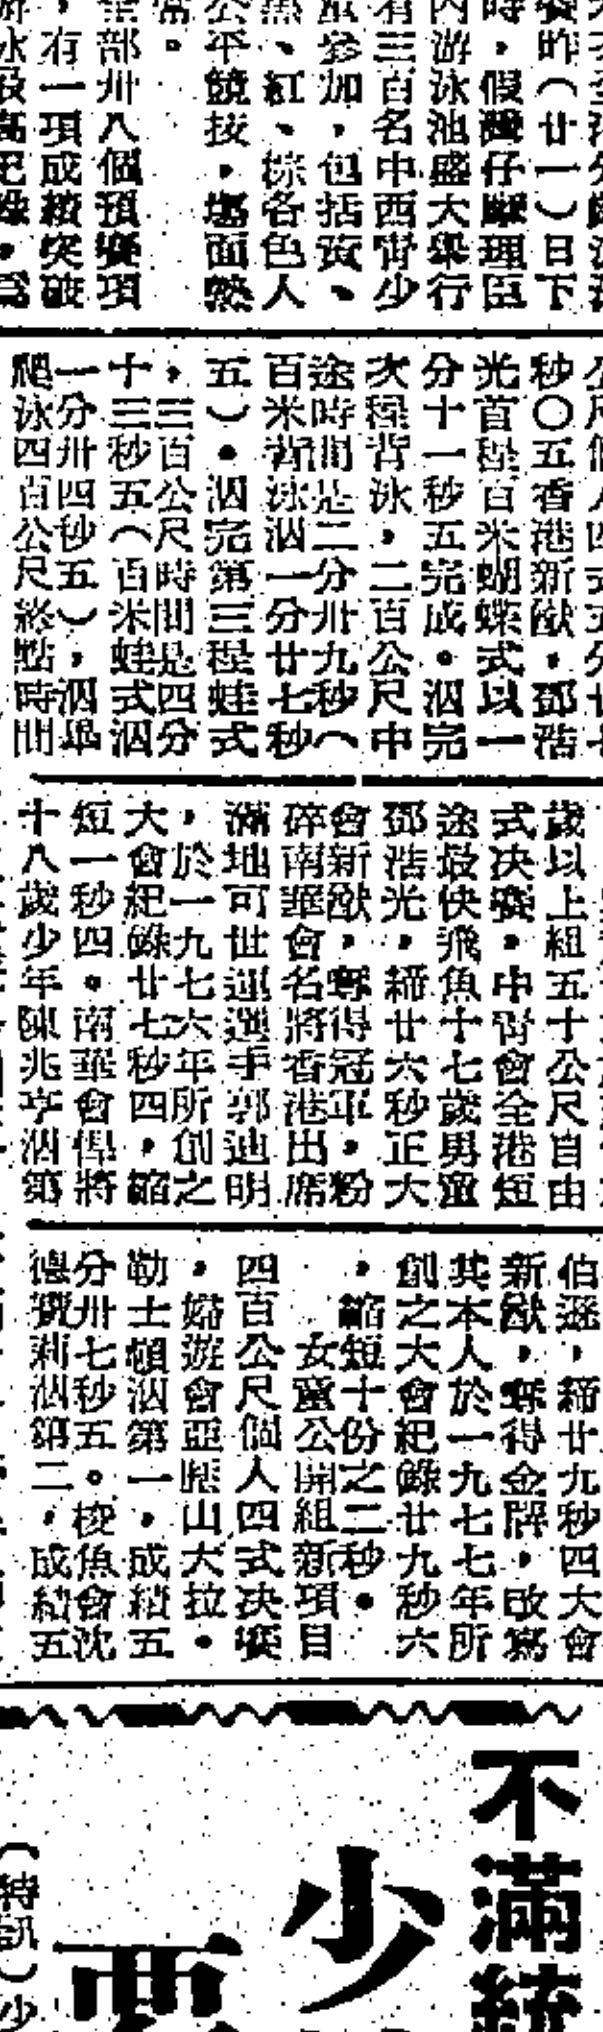 賽昨（廿一）日下
時，假灣仔摩理臣
內游泳池盛大舉行
有三百名中西青少
童參加，包括黃、
黑、紅、棕各色人
公平競技，場面熱
常。
全部卅八個預賽項
，有一項成績突破
游泳最高紀錄，爲
秒〇五香港新猷，鄧浩
光首程百米蝴蝶式以一
分十一秒五完成。泅完
次程背泳，二百公尺中
途時間是二分卅九秒（
百米背泳泅一分廿七秒
五）。泅完第三程蛙式
，三百公尺時間是四分
十三秒五（百米蛙式泅
一分卅四秒五），泅畢
爬泳四百公尺終點時間
歲以上組五十公尺自由
式决賽，中青會全港短
途最快飛魚十七歲男童
鄧浩光，締廿六秒正大
會新猷，奪得冠軍，粉
碎南華會名將香港出席
滿地可世運選手郭迪明
，於一九七六年所創之
大會紀錄廿七秒四，縮
短一秒四。南華會悍將
十八歲少年陳兆亨泅第
伯遜，締廿九秒四大會
新猷，奪得金牌，改寫
其本人於一九七七年所
創之大會紀錄廿九秒六
，縮短十份之二秒。
女童公開組新項目
四百公尺個人四式决賽
，婦遊會亞歷山大拉。
勒士頓泅第一，成績五
分卅七秒五。梭魚會沈
德寶莉泅第二，成績五
不滿統
少
要
（特訊）少